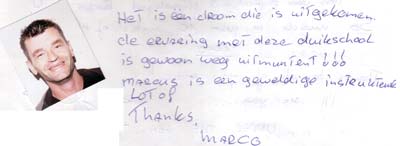 Het is één droom die is uitgekomen.
de ervaring met deze duikschool
is gewoon weg uitmuntent!!!
marcus is een geweldige instrukteur
LOT of
Thanks,
MARCO